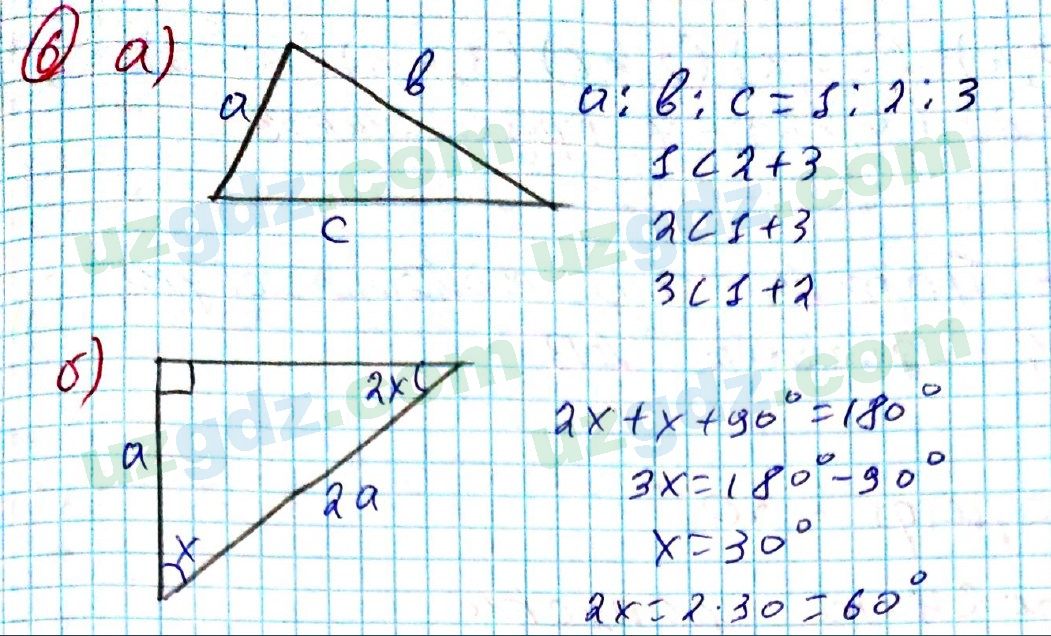 6 а)
a
b
c
a : b : c = 1 : 2 : 3
1 < 2 + 3
2 < 1 + 3
3 < 1 + 2
uzgdz.com
uzgdz.com
б)
2x
a
2a
x
2x + x + 90° = 180°
3x = 180° - 90°
x = 30°
2x = 2 · 30 = 60°
uzgdz.com
uzgdz.com